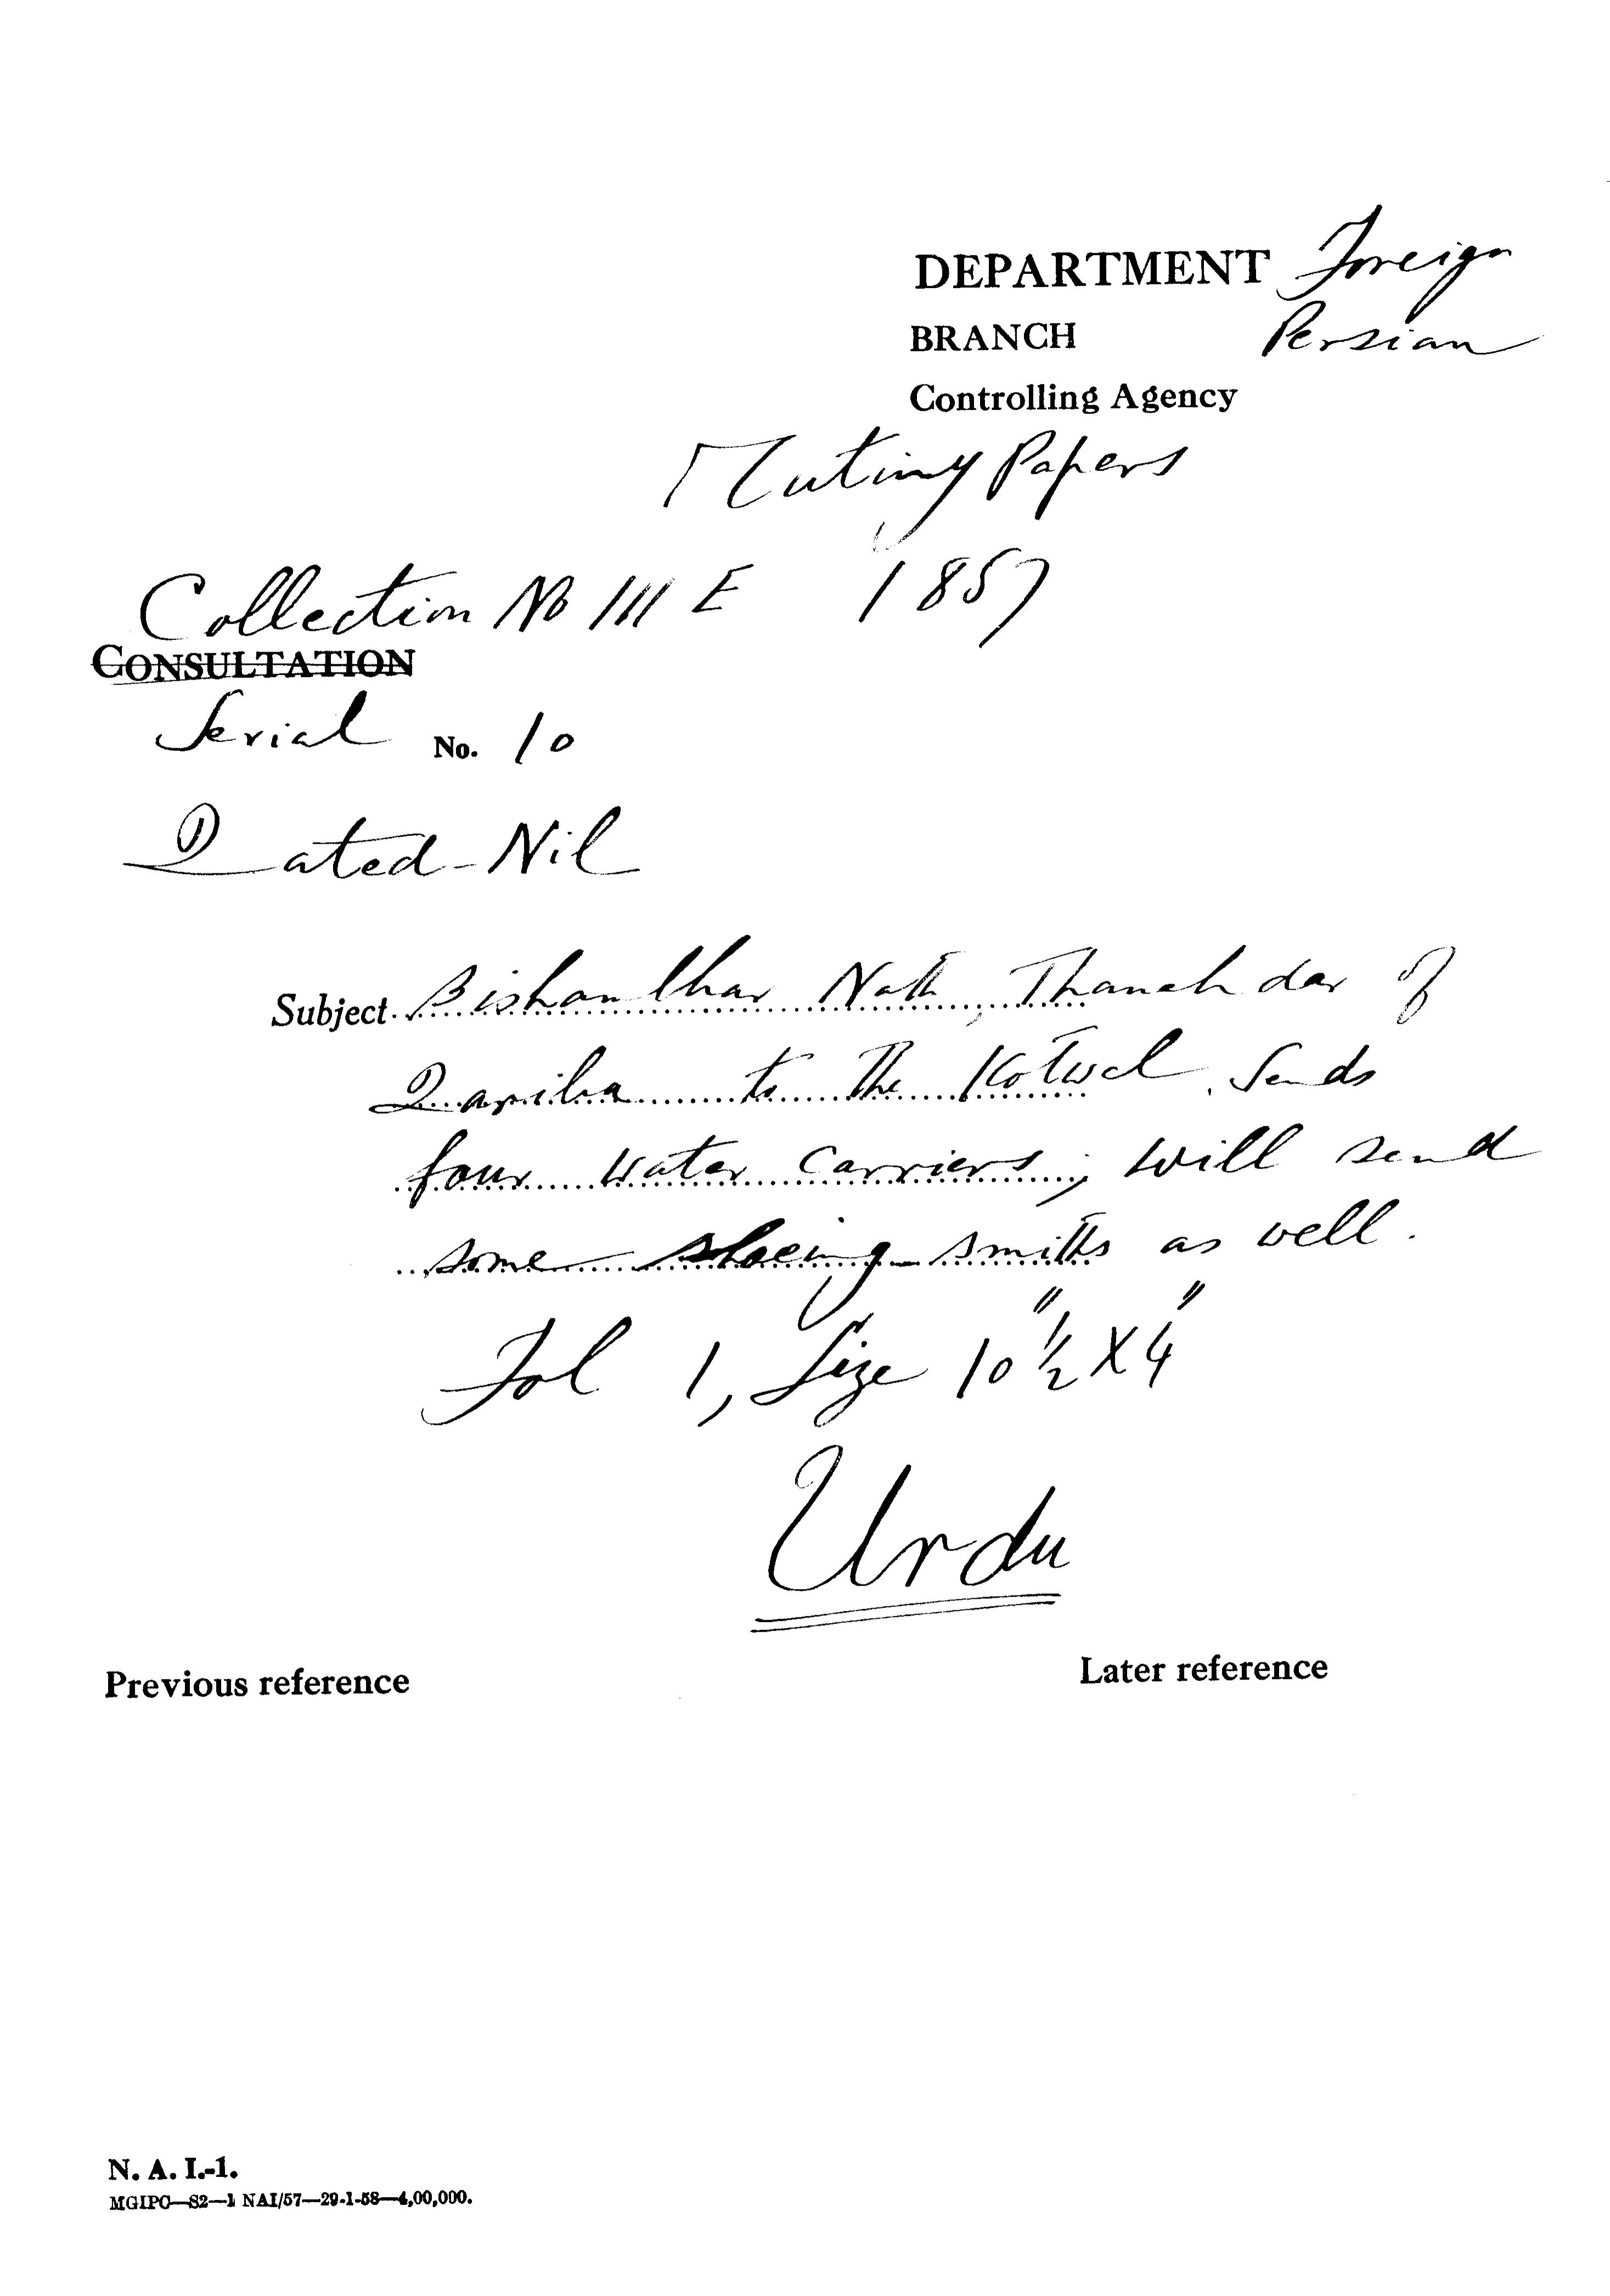 DEPARTMENT Foreign
BRANCH Persian
Controlling Agency
Mutiny Papers
Collection No III E 1857
CONSULTATION
Serial No. 10
Dated - Nil
Subject Nath, Thanehdar of
Dariba to the Kotwal. Sends
four water carriers; will send
some shoeing-smiths as well.
Fol 1, Size 10"½ X 4"
Urdu
Previous reference
Later reference
N. A. I.-1.
MGIPC—S2—1 NAI/57—29-1-58—4,00,000.